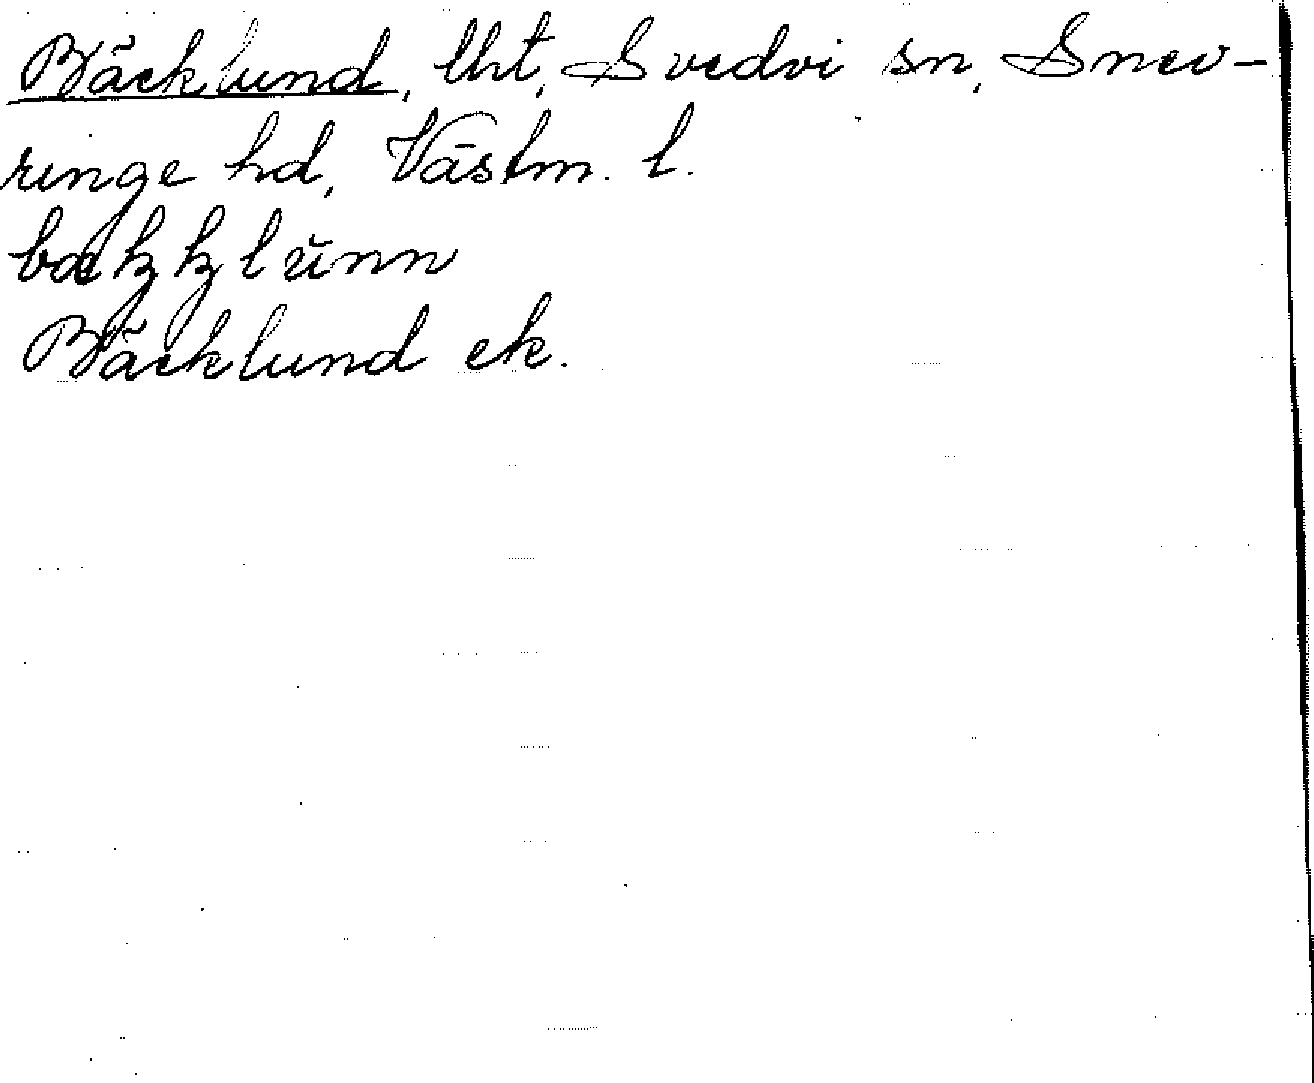 Bäcklund, lht, Svedvi sn, Snev-
ringe hd, Västm. l.
bækklŭnn
Bäcklund ek.